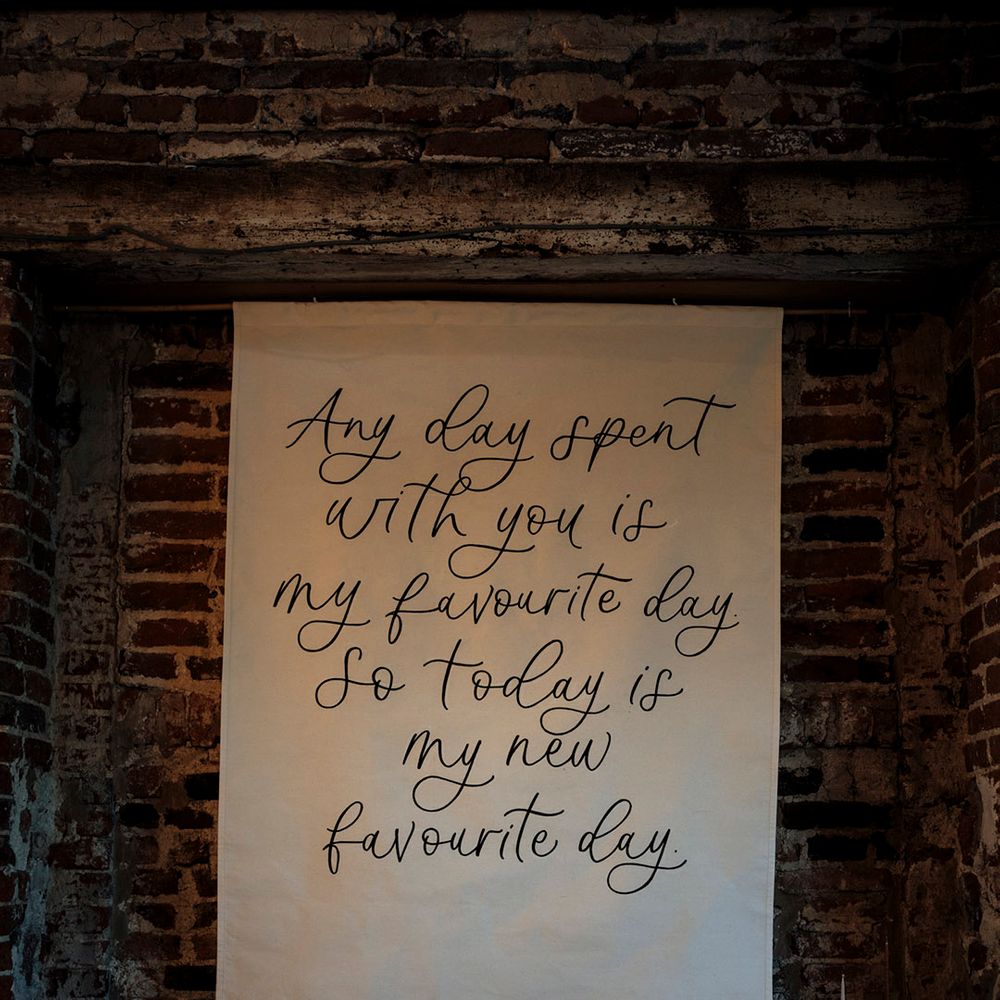 Any day spent
with you is
my favourite day.
So today is
my new
favourite day.